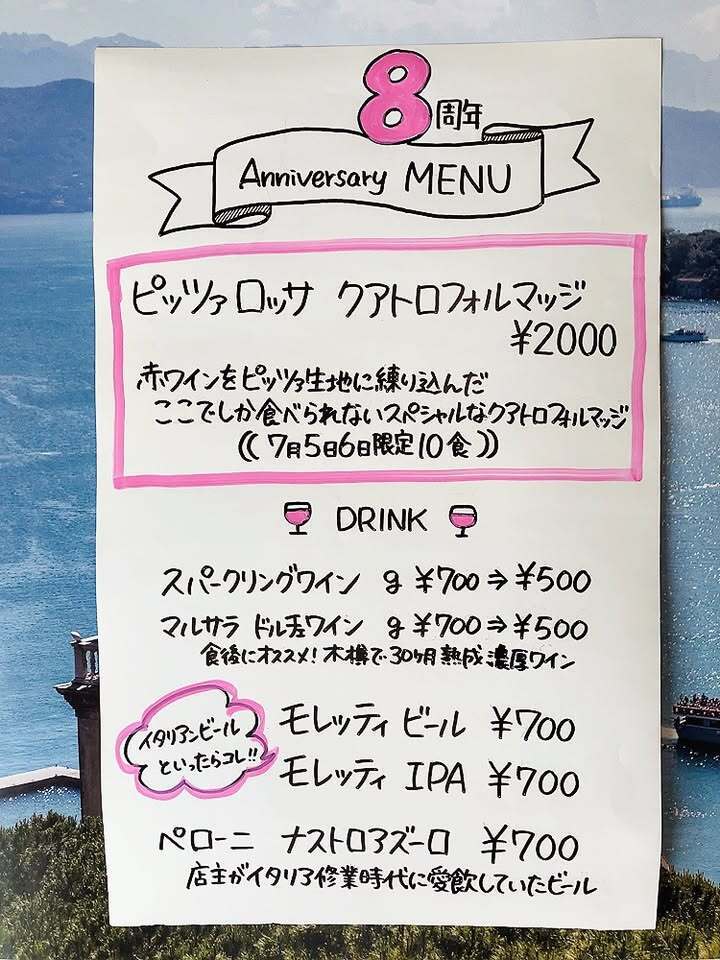 8周年
Anniversary MENU
ピッツァ ロッサ クアトロフォルマッジ
¥2000
赤ワインをピッツァ生地に練り込んだ
ここでしか食べられないスペシャルなクアトロフォルマッジ
((7月5日6日限定10食))
DRINK
スパークリングワイン g ¥700⇒¥500
マルサラ ドルチェワイン g ¥700⇒¥500
食後にオススメ!木樽で30ヶ月熟成濃厚ワイン
イタリアンビール
といったらコレ!!
モレッティ ビール ¥700
モレッティ IPA ¥700
ペローニ ナストロアズーロ ¥700
店主がイタリア修業時代に愛飲していたビール